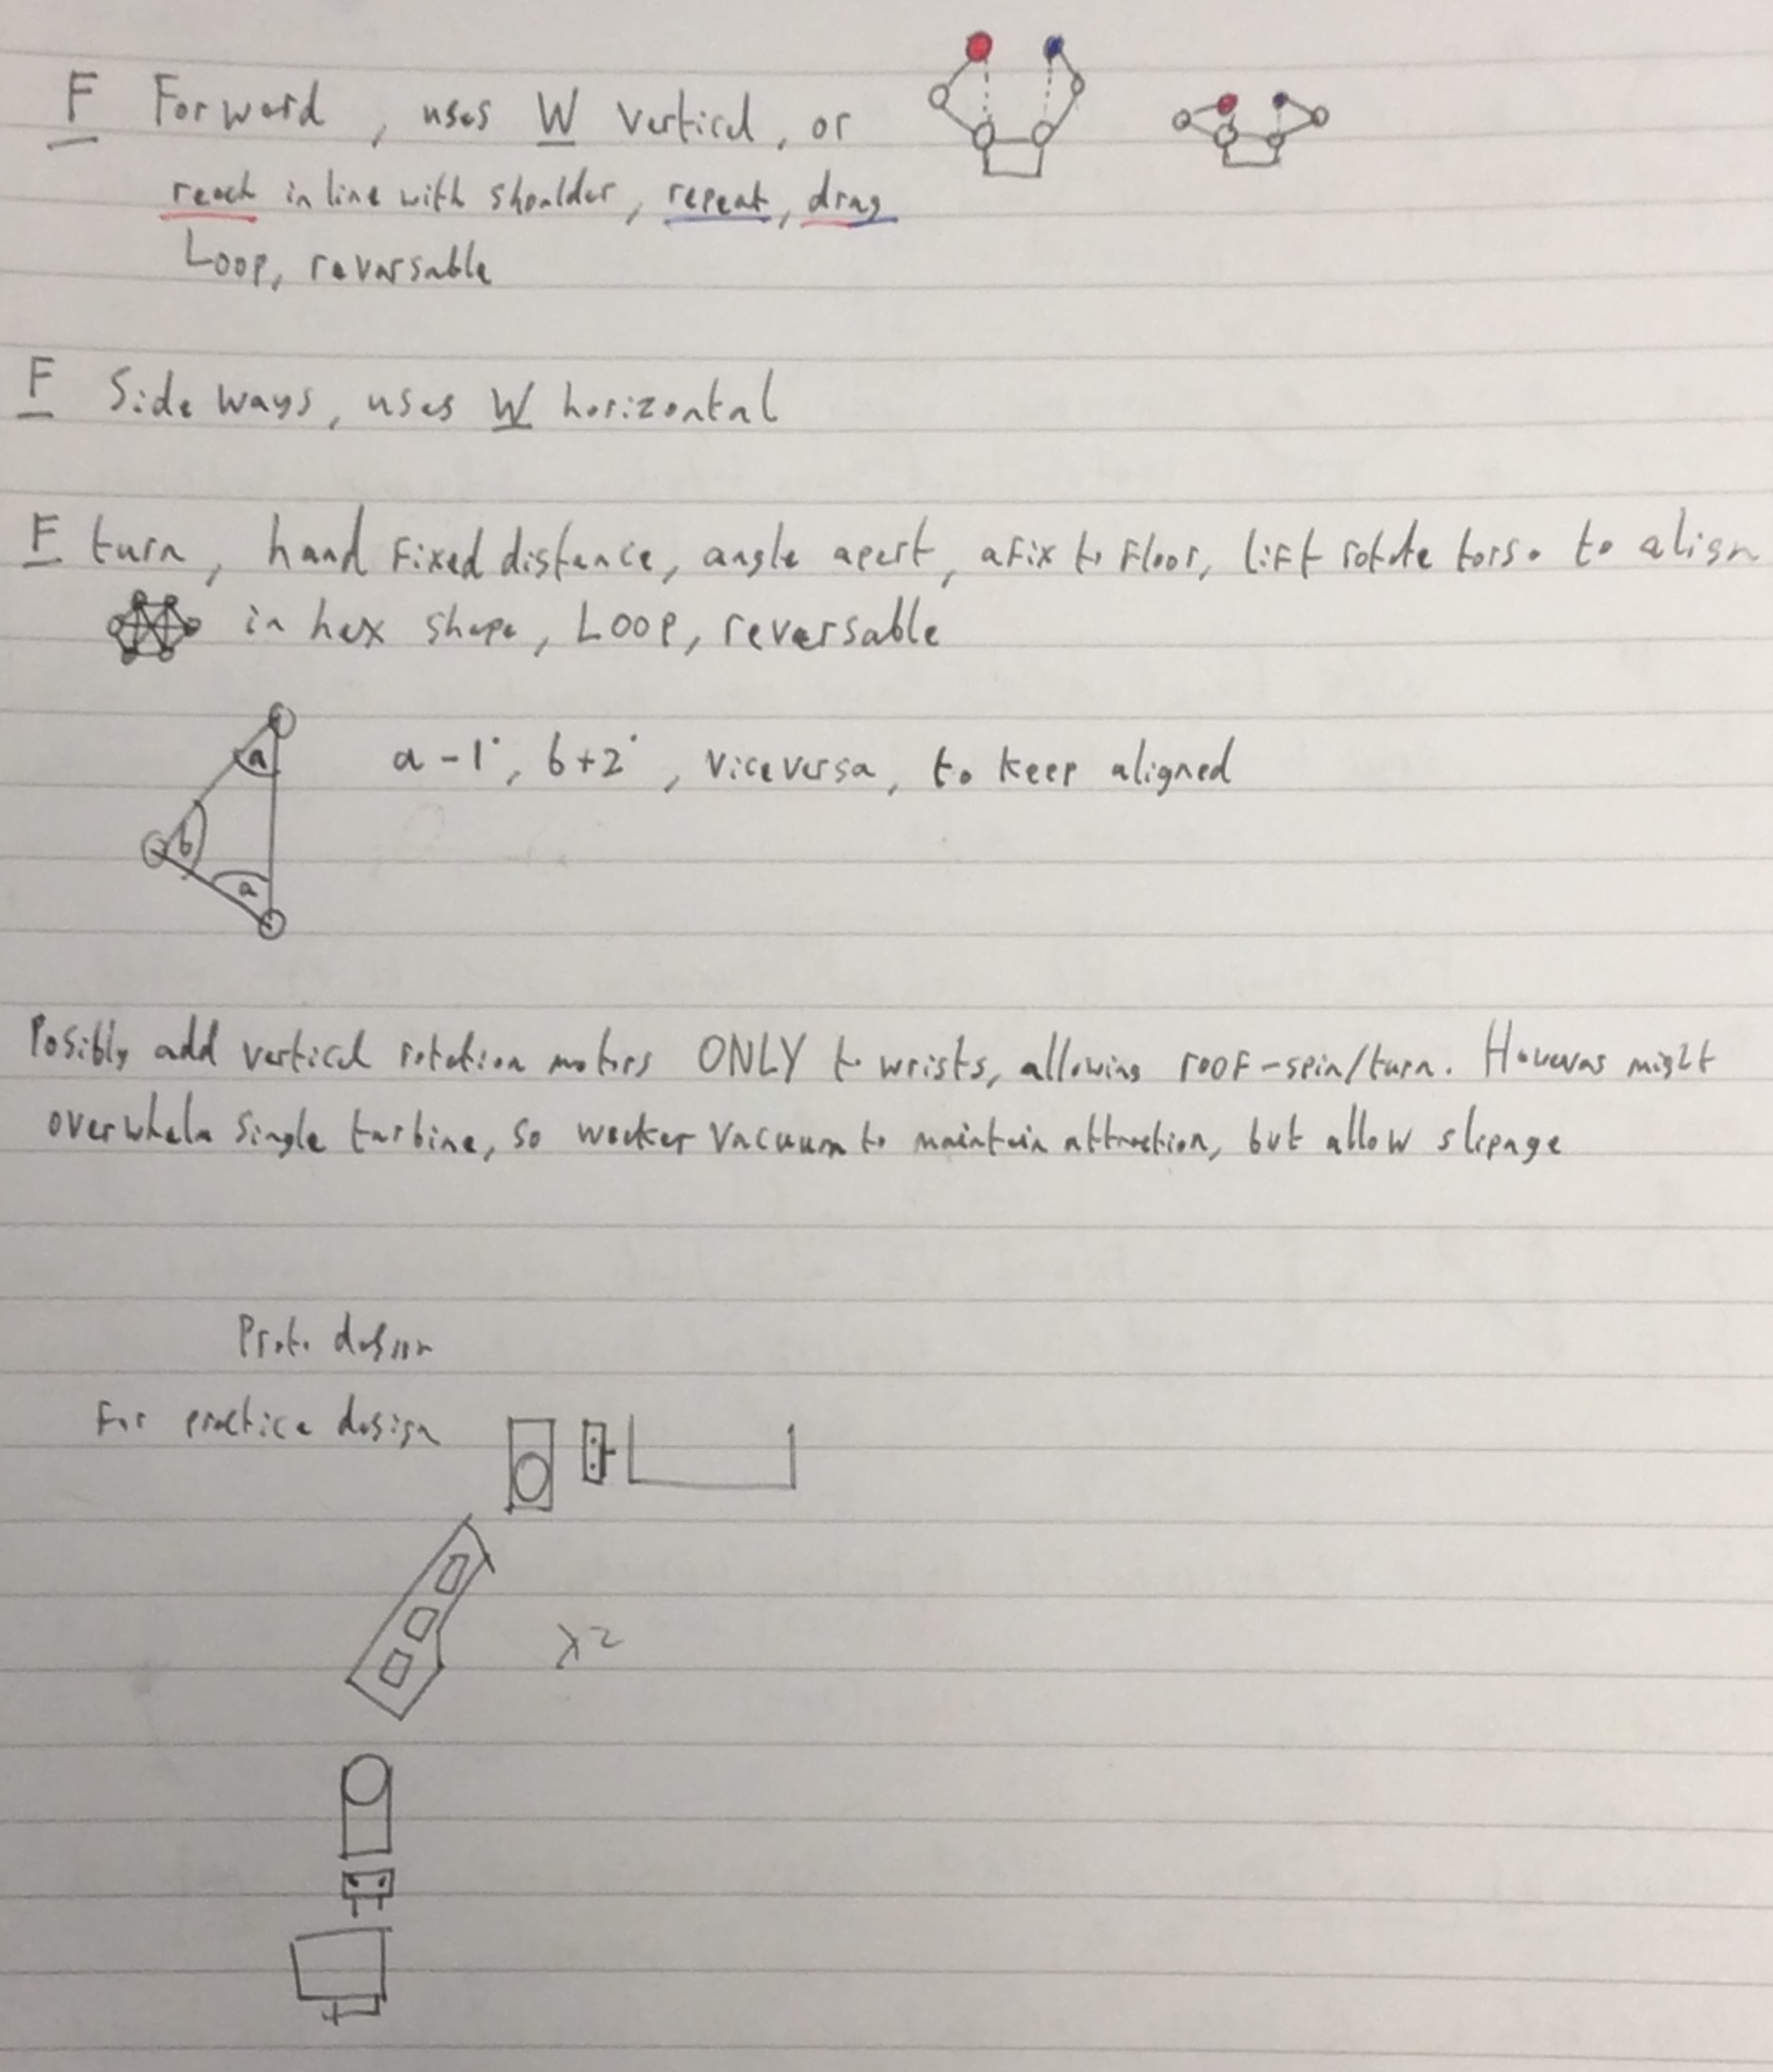 F Forward, uses W vertical, or
reach in line with shoulder, repeat, drag
Loop, reversable
F Side ways, uses W horizontal
F turn, hand fixed distance, angle apart, afix to floor, lift rotate torso to align
in hex shape, Loop, reversable
a
a - 1°, b + 2°, viceversa, to keep aligned
b
a
Posibly add vertical rotation motors ONLY to wrists, allowing roof-spin/turn. However might
overwhelm single turbine, so weaker vacuum to maintain attraction, but allow slipage
Proto design
For practice design
x2